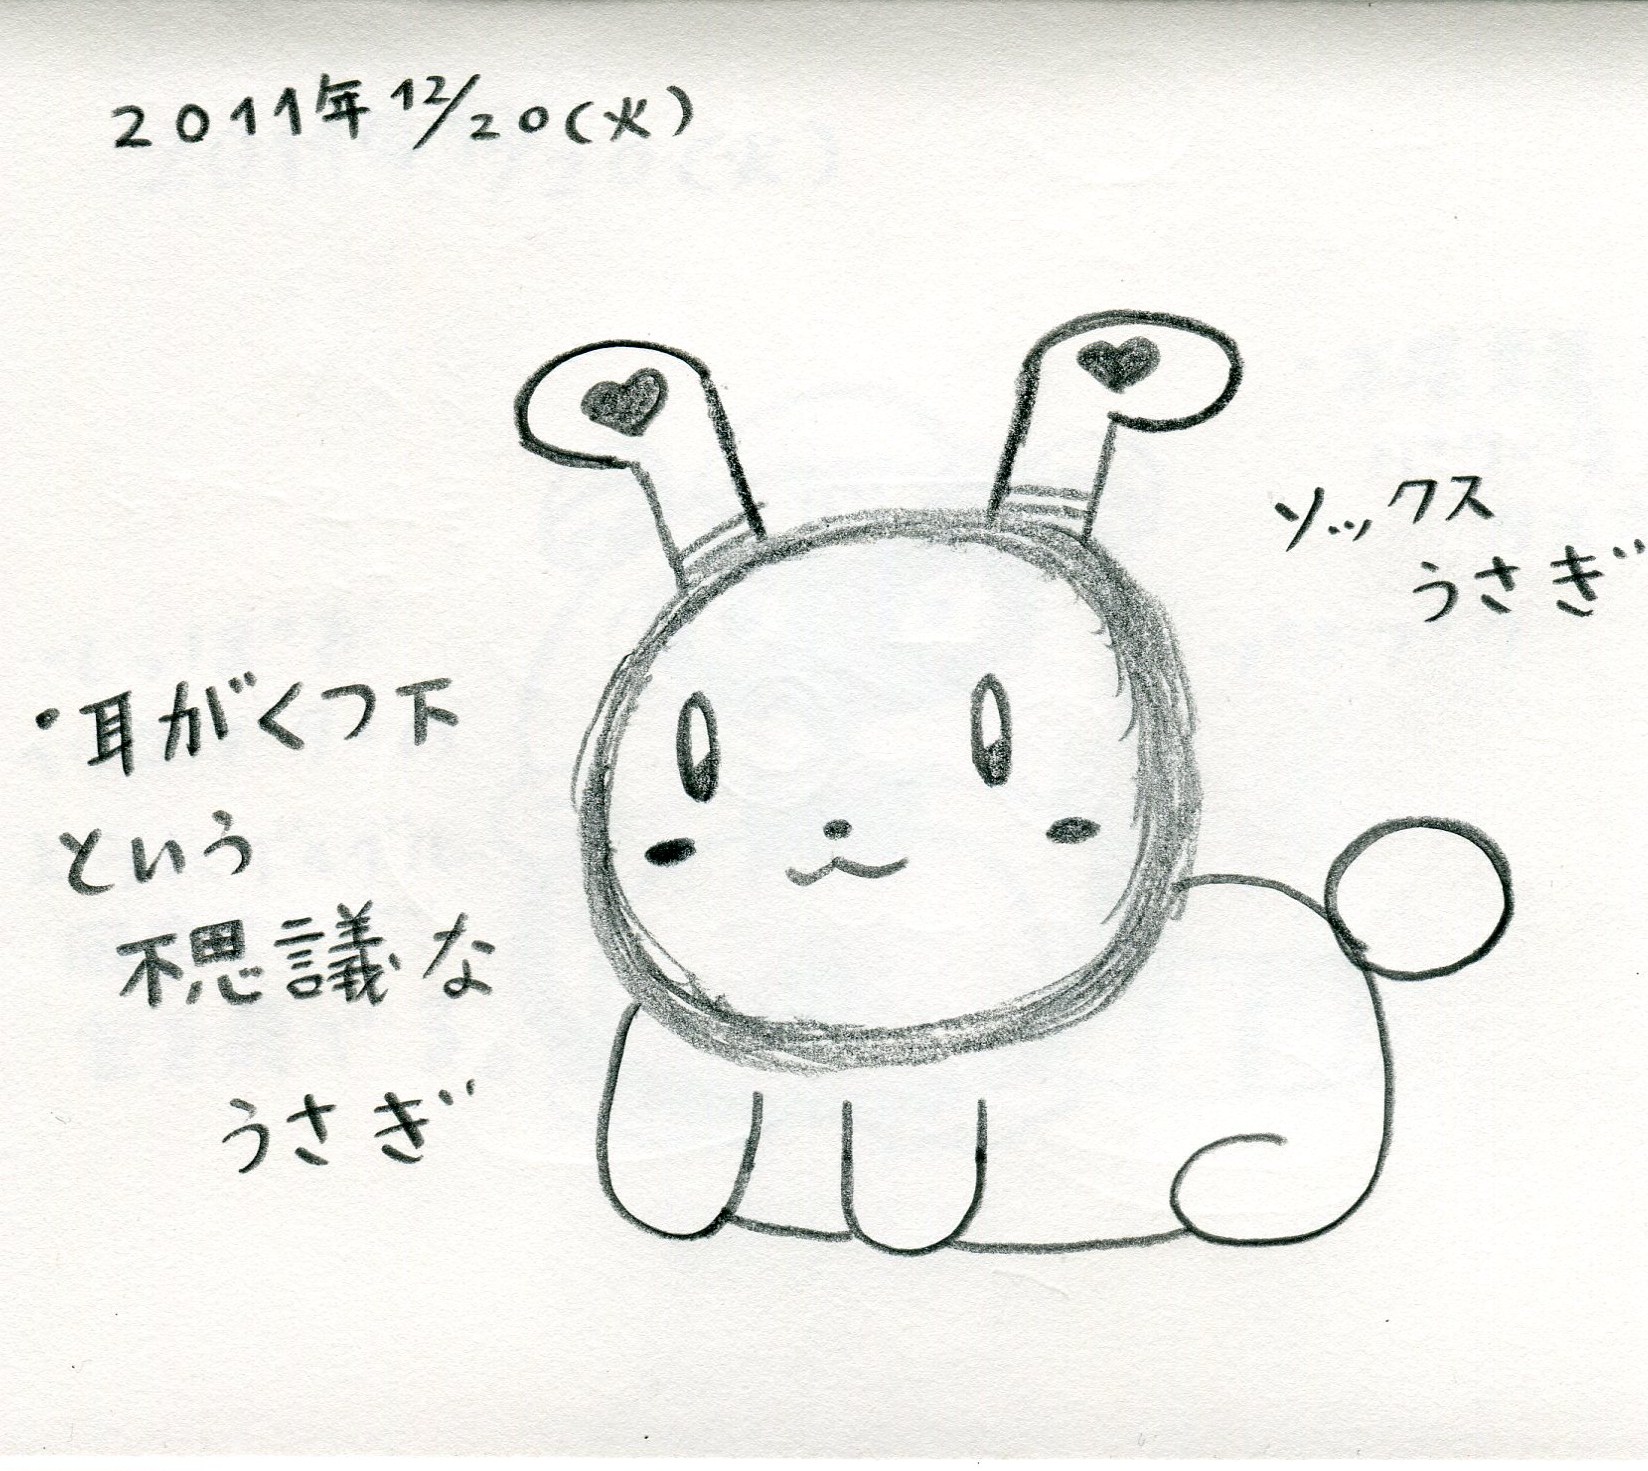 2011年12/20(火)
ソックス
うさぎ
・耳がくつ下
という
不思議な
うさぎ